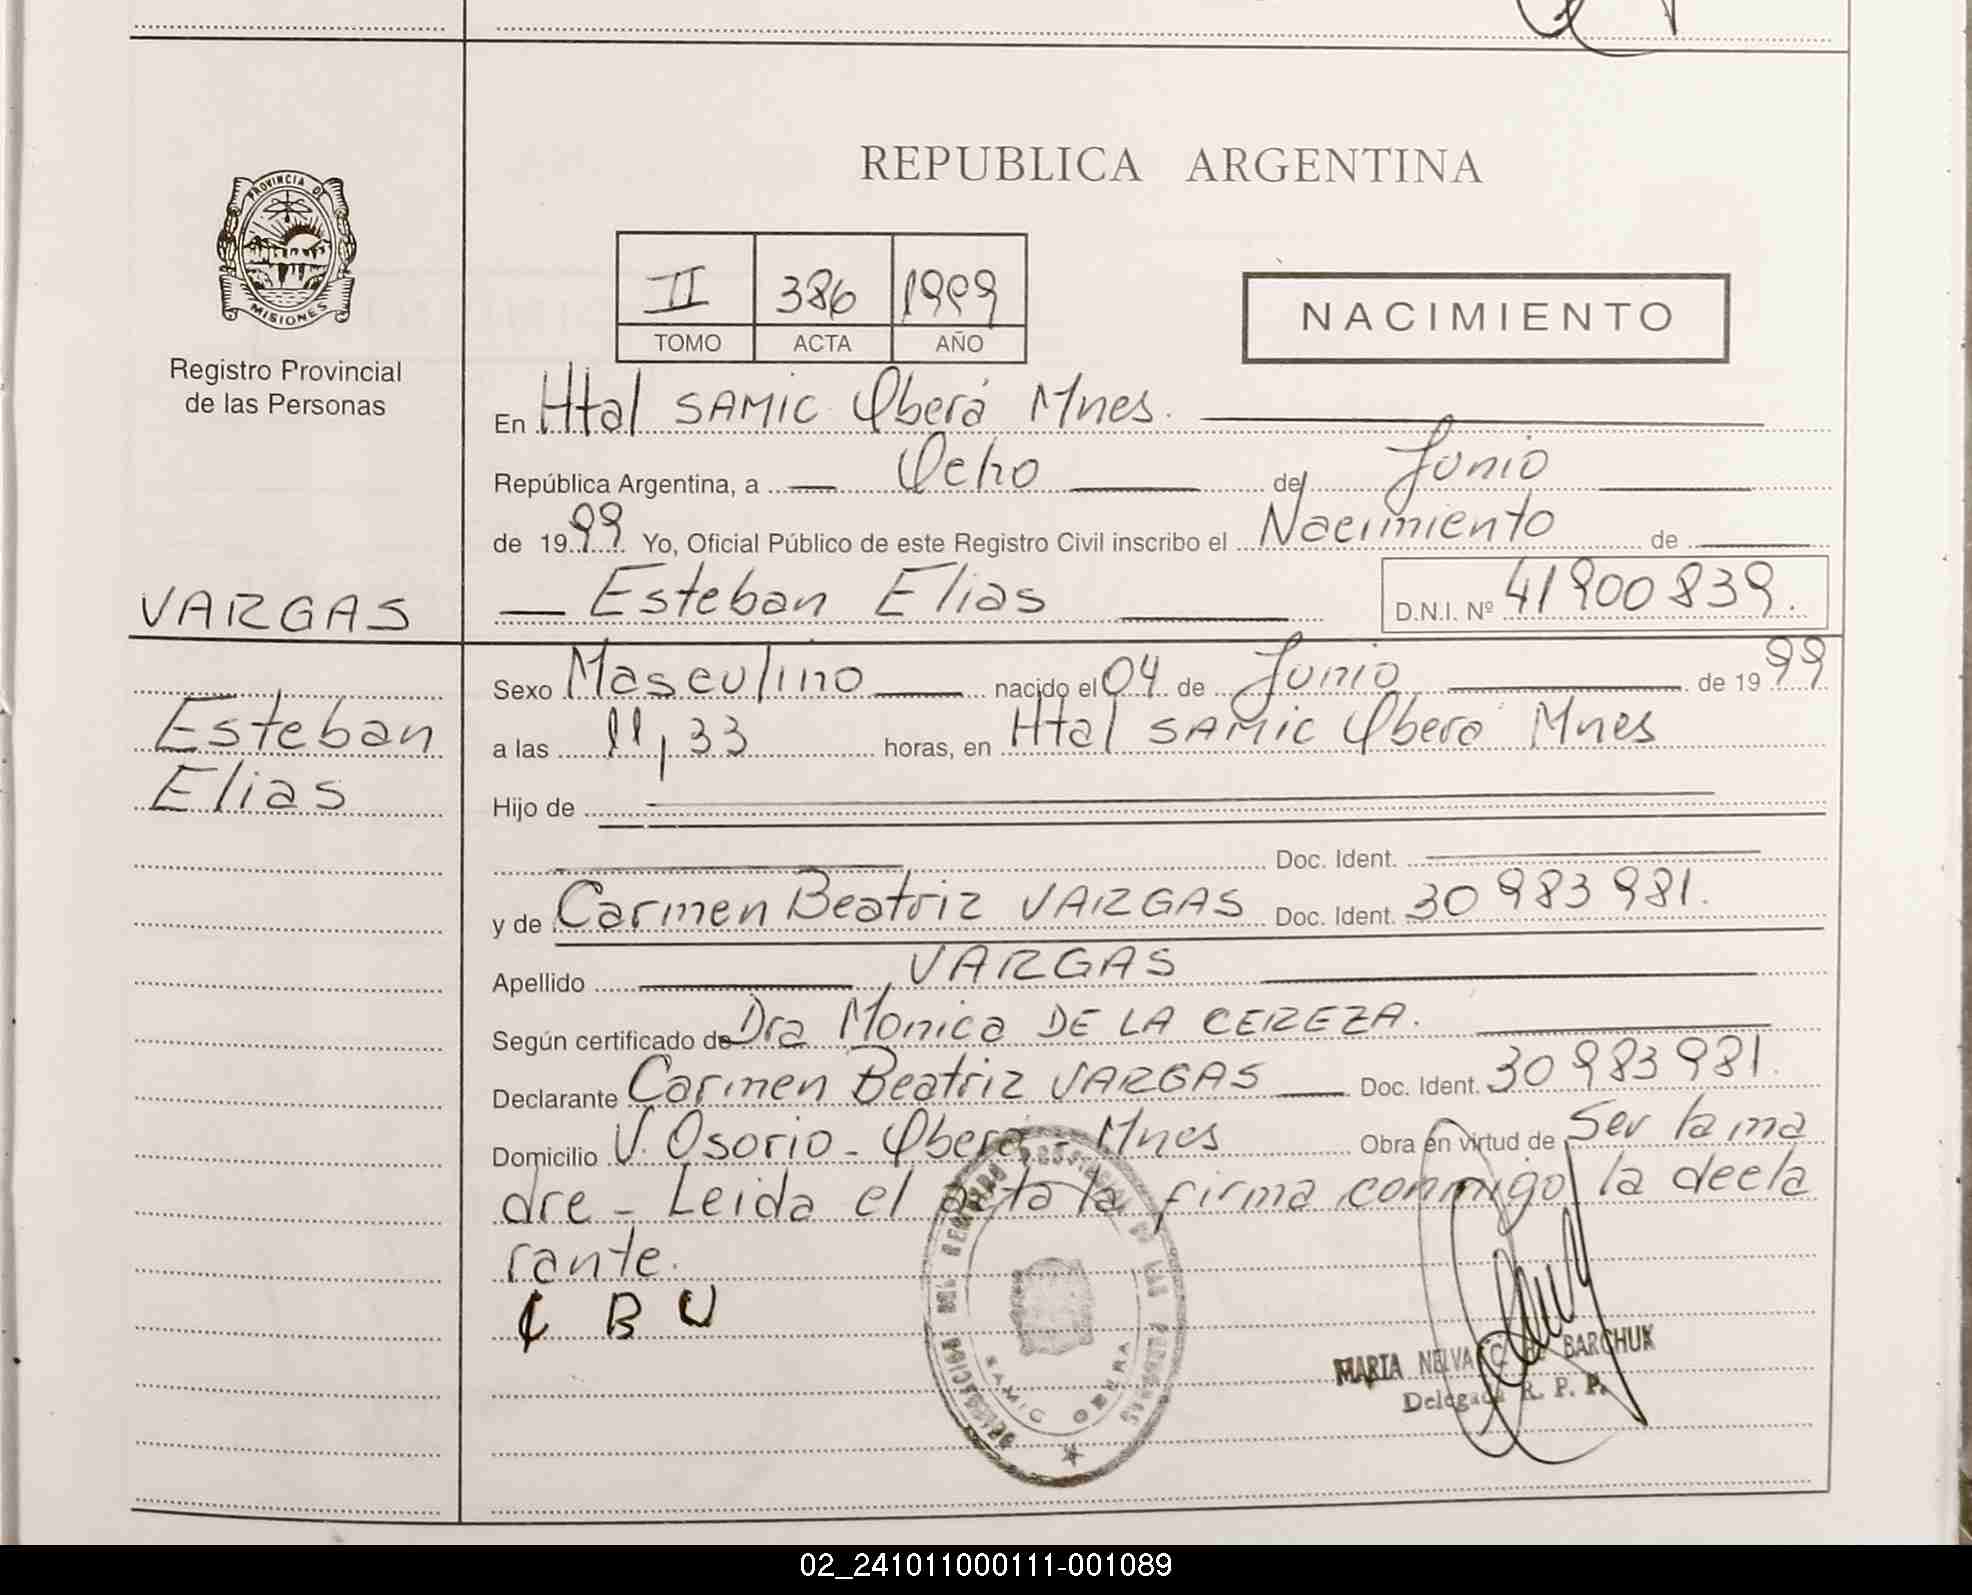 REPUBLICA ARGENTINA
PROVINCIA DE
MISIONES
Registro Provincial
de las Personas
II 386 1999
TOMO ACTA AÑO
NACIMIENTO
En Htal SAMIC Oberá Mnes.
República Argentina, a Ocho de Junio
de 1999 Yo, Oficial Público de este Registro Civil inscribo el Nacimiento de
VARGAS
Esteban Elias D.N.I. Nº 41900839.
Esteban
Elias
Sexo Masculino nacido el 04 de Junio de 1999
a las 11,33 horas, en Htal SAMIC Oberá Mnes
Hijo de
Doc. Ident.
y de Carmen Beatriz VARGAS Doc. Ident. 30983981.
Apellido VARGAS
Según certificado de Dra Monica DE LA CEREZA.
Declarante Carmen Beatriz VARGAS Doc. Ident. 30983981.
Domicilio V. Osorio - Oberá - Mnes Obra en virtud de Ser la ma
dre - Leida el acta la firma conmigo la decla
rante.
C B V
SAMIC OBERA
MARTA NELVA C. de BARCHUK
Delegada R. P. P.
02_241011000111-001089